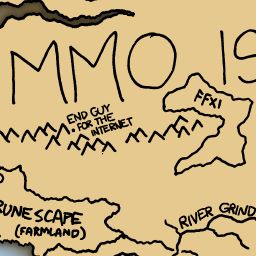 MMO IS
FFXI
END GUY
FOR THE
INTERNET
RUNESCAPE
(FARMLAND)
RIVER GRIND